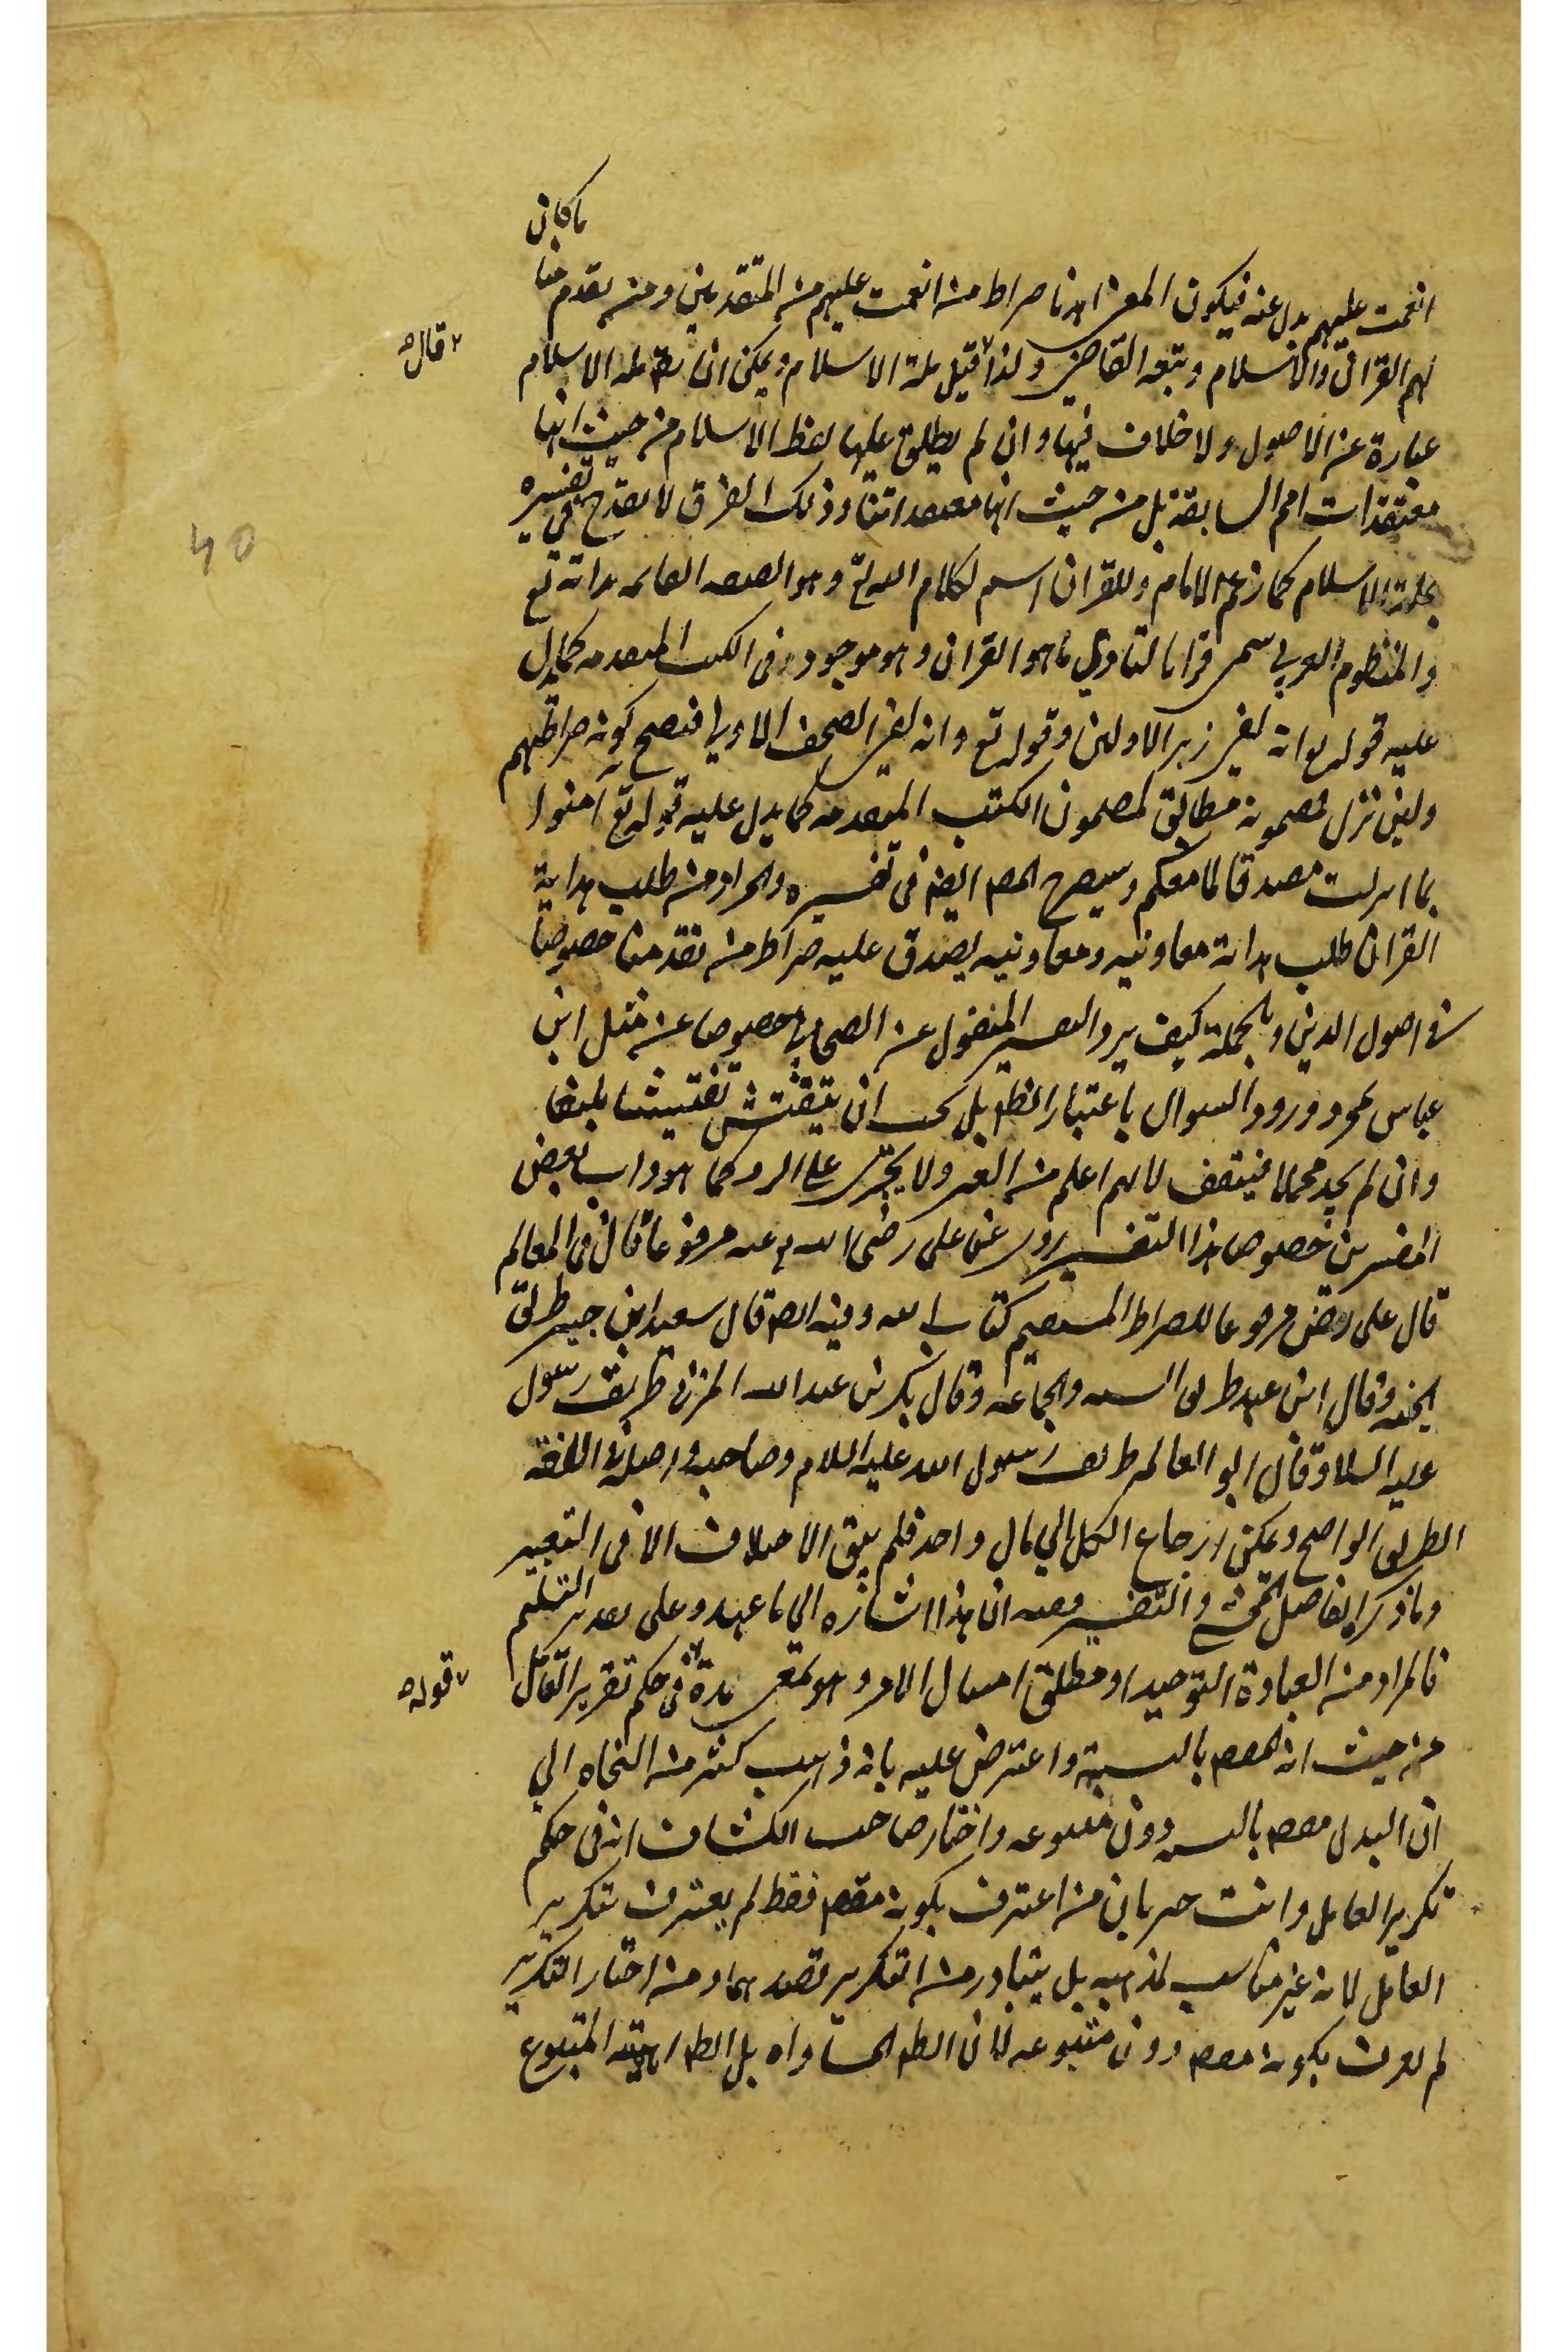 ما كان
انعمت عليهم بدل عنه فيكون المعنى اهدنا صراط من انعمت عليهم من المتقدمين ومن تقدم منا
لهم القران والاسلام وتبعه القاضي ولذا قيل ملة الاسلام ويمكن ان يقال ملة الاسلام
قال
عبارة عن الاصول ولا خلاف فيها وان لم يطلق عليها لفظ الاسلام من حيث انها
معتقدات امم السابقة بل من حيث انها معتقداتنا وذلك الفرق لا يقدح في تفسيره
بملة الاسلام كما زعم الامام وللقران اسم لكلام الله تع وهو الصفة القائمة بذاته تع
والمنظوم العربي سمى قرانا لتادي ما هو القران وهو موجود في الكتب المتقدمة كما يدل
عليه قوله وانه لفي زبر الاولين وقوله تع وان لفي الصحف الاولى فيصح كونه صراطهم
ولئن نزل فمضمونه مطابق لمضمون الكتب المتقدمة كما يدل عليه قوله تع امنوا
بما انزلت مصدقا لما معكم وسيصرح المص ايضا في تفسيره والمراد من طلب هداية
القران طلب هداية معاونيه ومعاونيه يصدق عليه صراط من تقدمنا خصوصا
في اصول الدين وبالجملة كيف يرد التفسير المنقول عن الصحابي خصوصا عن مثل ابن
عباس بمجرد ورود السوال باعتبار النظر بل يجب ان يتفتش تفتيشا بليغا
وان لم يجد محملا فيتوقف لانهم اعلم من الغير ولا يجترى على الرد كما هو داب بعض
المفسرين خصوصا هذا التفسير روى عن على رضى الله عنه مرفوعا قال في المعالم
قال على رضى مرفوعا للصراط المستقيم كتاب الله وفيه ايضا قال سعيد ابن جبير طريق
الجنة وقال ابن عبد طريق السنة والجماعة وقال بكر بن عبد الله المزني طريق رسول
عليه السلام وقال ابو العالية طريق رسول الله عليه السلام وصاحبيه واصله في اللغة
الطريق الواضح ويمكن ارجاع الكل الى مال واحد فلم يبق الاختلاف الا في التعبير
وما ذكره الفاضل المحشى والتفسير ان هذا اشارة الى ما عهد وعلى تقدير التسليم
فالمراد من العبادة التوحيد او مطلق امتثال الامر وهو في حكم تقرير القائل
قوله
من حيث انه المقصود بالنسبة واعترض عليه بانه ذهب كثير من النحاه الى
ان البدل مقصود بالنسبة دون متبوعه واختار صاحب الكشاف انه في حكم
تكرير العامل وانت خبير بان من اعترف بكونه مقصودا فقط لم يعترف بتكرير
العامل لانه غير مناسب لمذهبه بل يتبادر من التكرير قصدهما ومن اختار التكرير
لم يعرف بكونه مقصودا دون متبوعه لان الظ المساواه بل الظ اهمية المتبوع